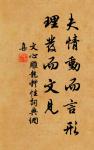 夫情動而言形
理發而文見
文心雕龍體性詞典網
集